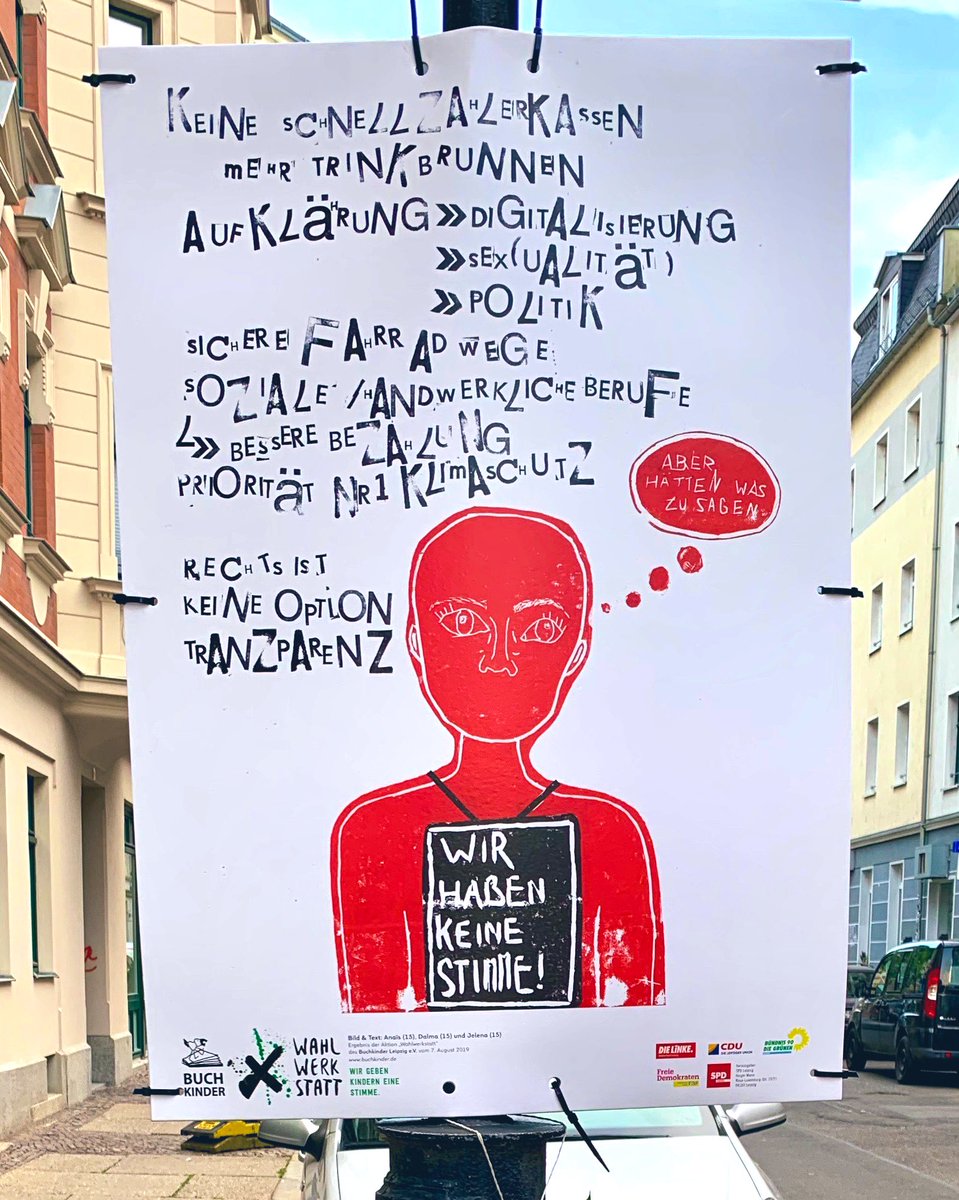 KEINE SCHNELLZAHLERKASSEN
MEHR TRINKBRUNNEN
AUFKLÄHRUNG » DIGITALISIERUNG
» SEX(UALITÄT)
» POLITIK
SICHERE FAHRRADWEGE
SOZIALE/HANDWERKLICHE BERUFE
↳» BESSERE BEZAHLUNG
PRIORITÄT NR1 KLIMASCHUTZ
ABER
HÄTTEN WAS
ZU SAGEN
RECHTS IST
KEINE OPTION
TRANZPARENZ
WIR
HABEN
KEINE
STIMME!
BUCH
KINDER
WAHL
WERK
STATT
Bild & Text: Anaïs (15), Dalma (15) und Jelena (15)
Ergebnis der Aktion „Wahlwerkstatt"
des Buchkinder Leipzig e.V. vom 7. August 2019
www.buchkinder.de
WIR GEBEN
KINDERN EINE
STIMME.
DIE LINKE.
CDU
BÜNDNIS 90
DIE GRÜNEN
Freie
Demokraten
SPD